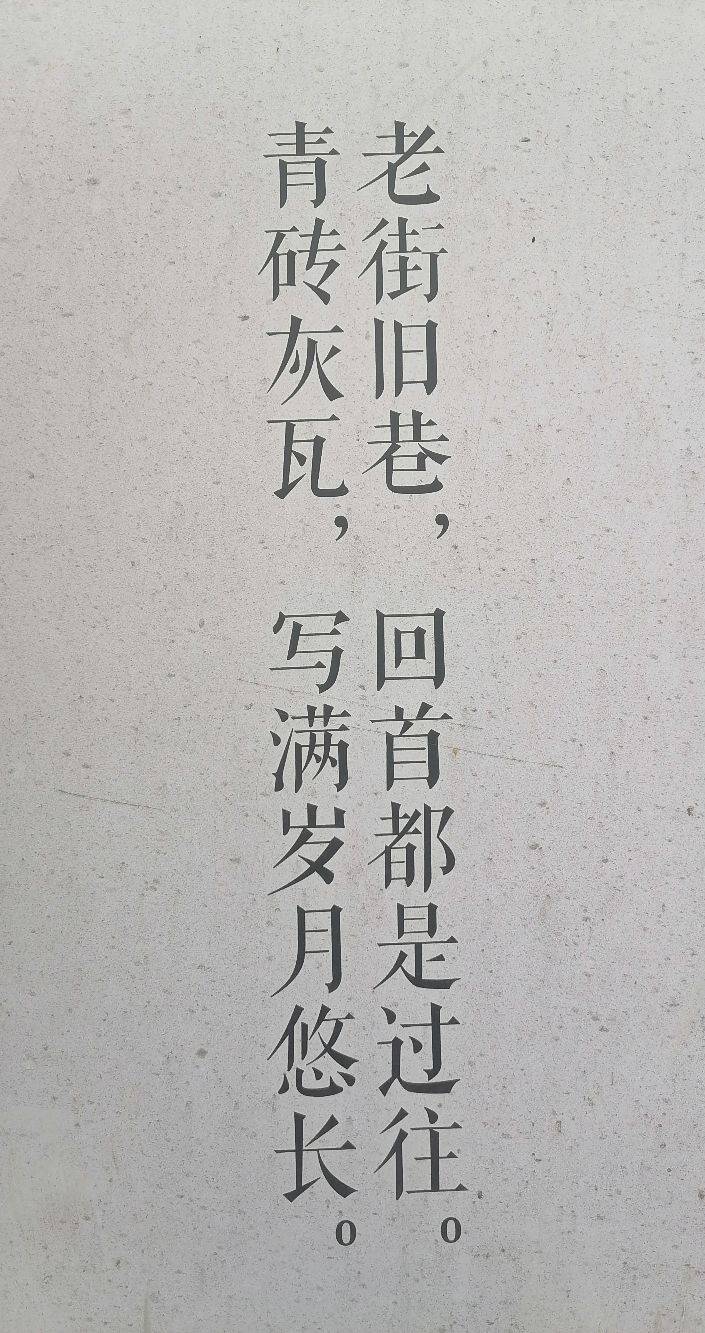 老街旧巷，回首都是过往。
青砖灰瓦，写满岁月悠长。